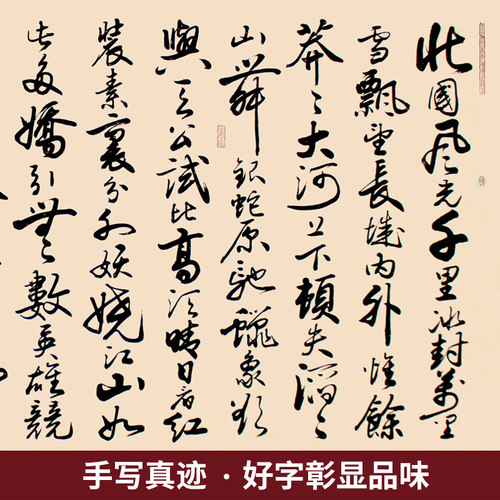 北國風光千里冰封萬里
雪飄望長城内外惟餘
莽〻大河上下頓失滔〻
山舞銀蛇原馳蠟象欲
與天公試比高須晴日看紅
裝素裹分外妖嬈江山如
此多嬌引無數英雄競
手写真迹 · 好字彰显品味